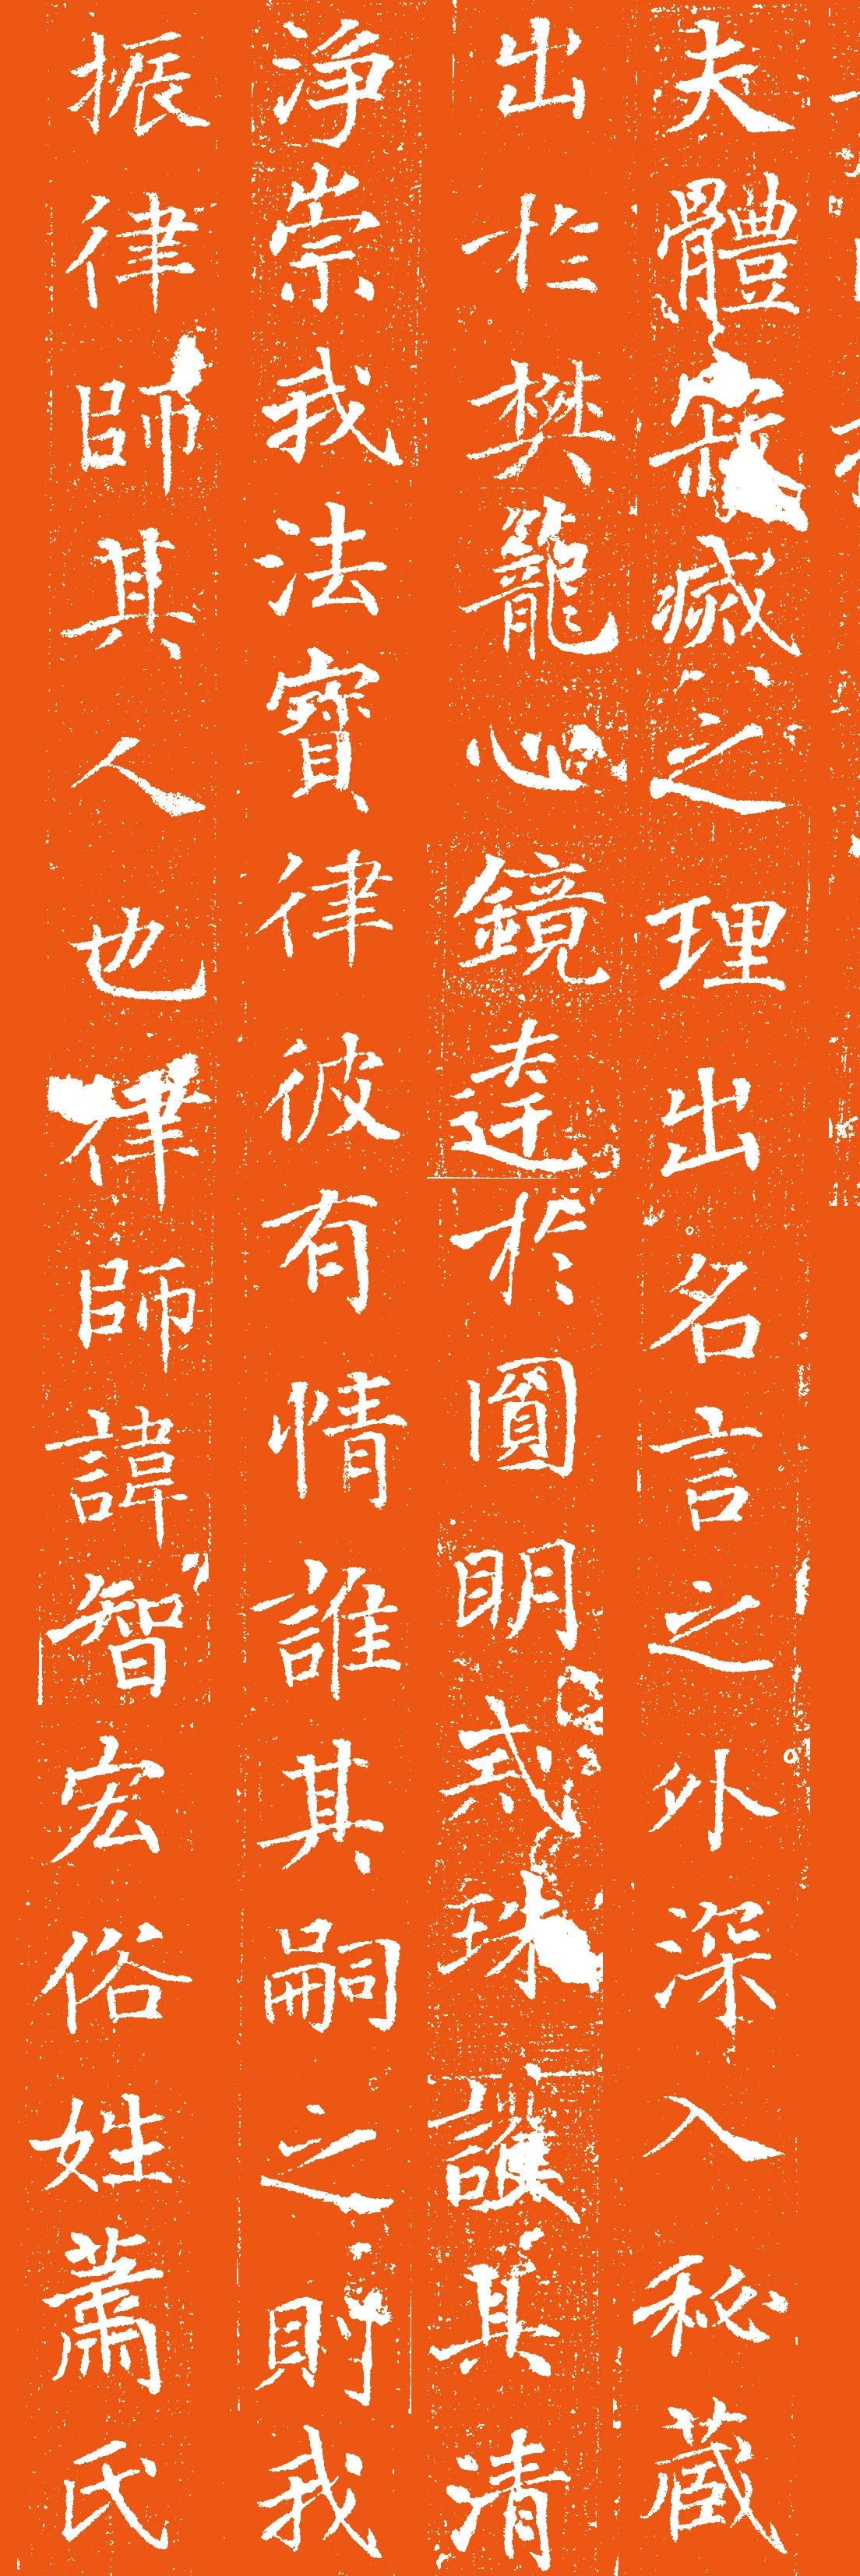 夫體寂滅之理出名言之外深入秘藏
出於樊籠心鏡達於圓明戒珠護其清
淨崇我法寶律彼有情誰其嗣之則我
振律師其人也律師諱智宏俗姓蕭氏